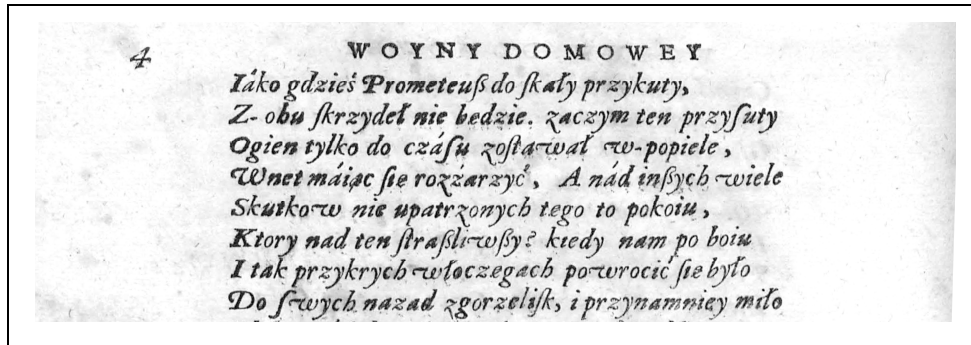 4 WOYNY DOMOWEY
Iáko gdzieś Prometeuß do ſkały przykuty,
Z- obu ſkrzydeł nie będzie. zaczym ten przyſuty
Ogien tylko do czáſu zoſtawał w-popiele,
Wnet máiąc ſię rozzarzyć, A nád inßych wiele
Skutkow nie upatrzonych tego to pokoiu,
Ktory nad ten ſtraßliwßy? kiedy nam po boiu
I tak przykrych włoczęgach powrocić ſię było
Do ſwych nazad zgorzeliſk, i przynamniey miło